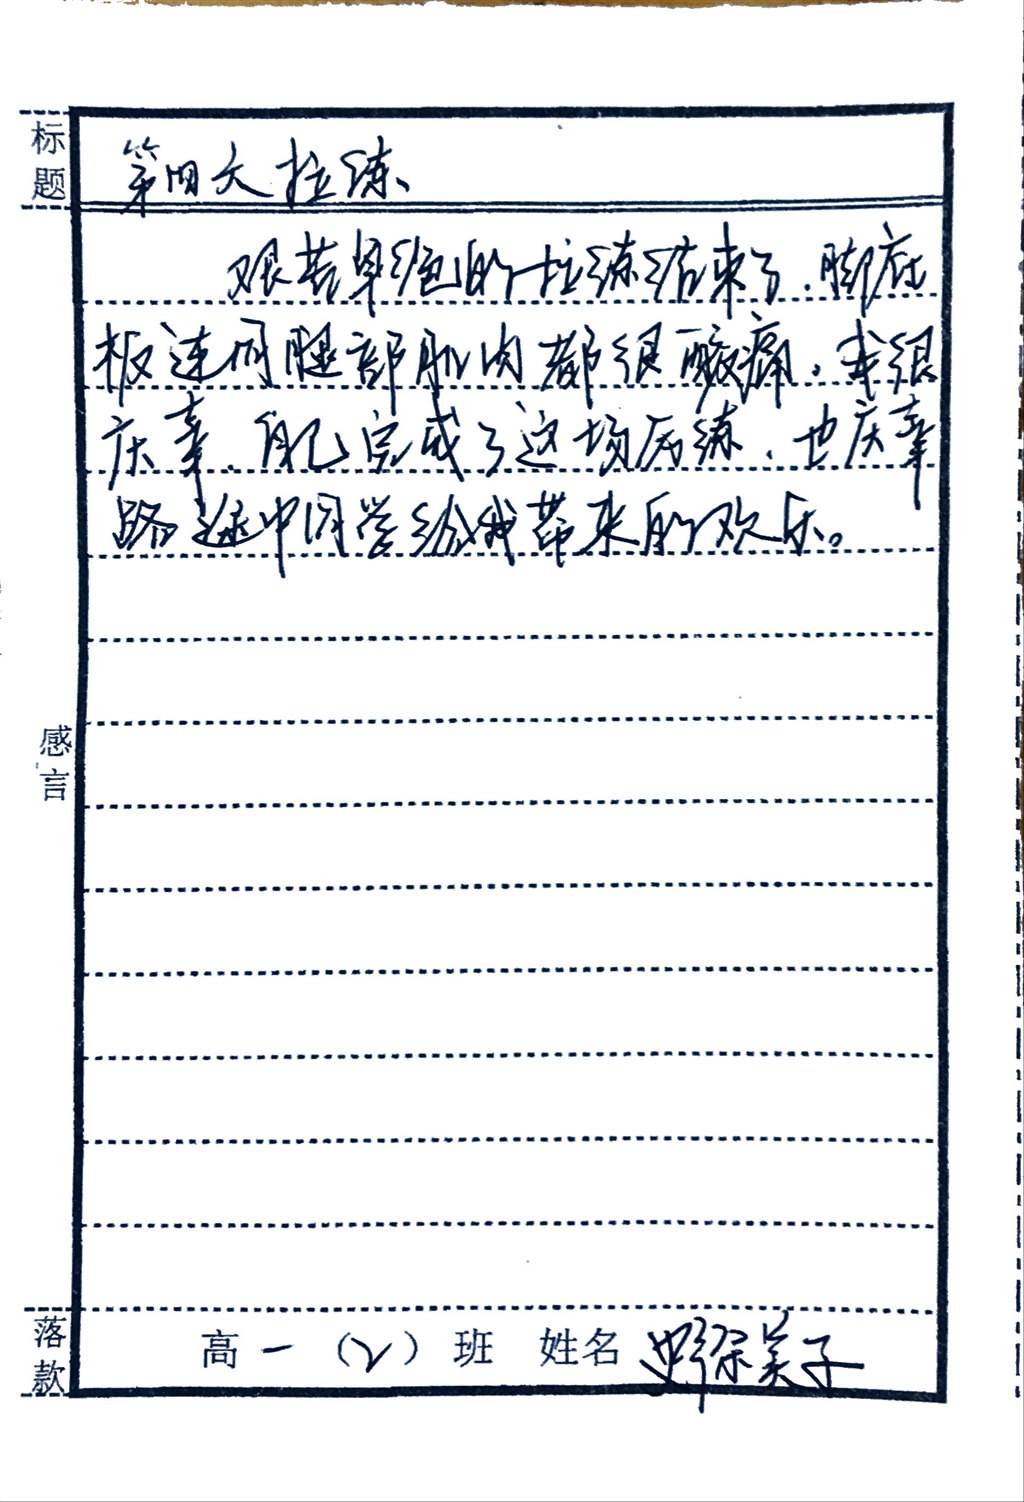 标题
第四大拉练
艰苦卓绝的拉练结束了,脚底
板连同腿部肌肉都很酸痛,我很
庆幸,自己完成了这场历练,也庆幸
路途中同学给我带来的欢乐。
感言
落款
高一(2)班 姓名 美子